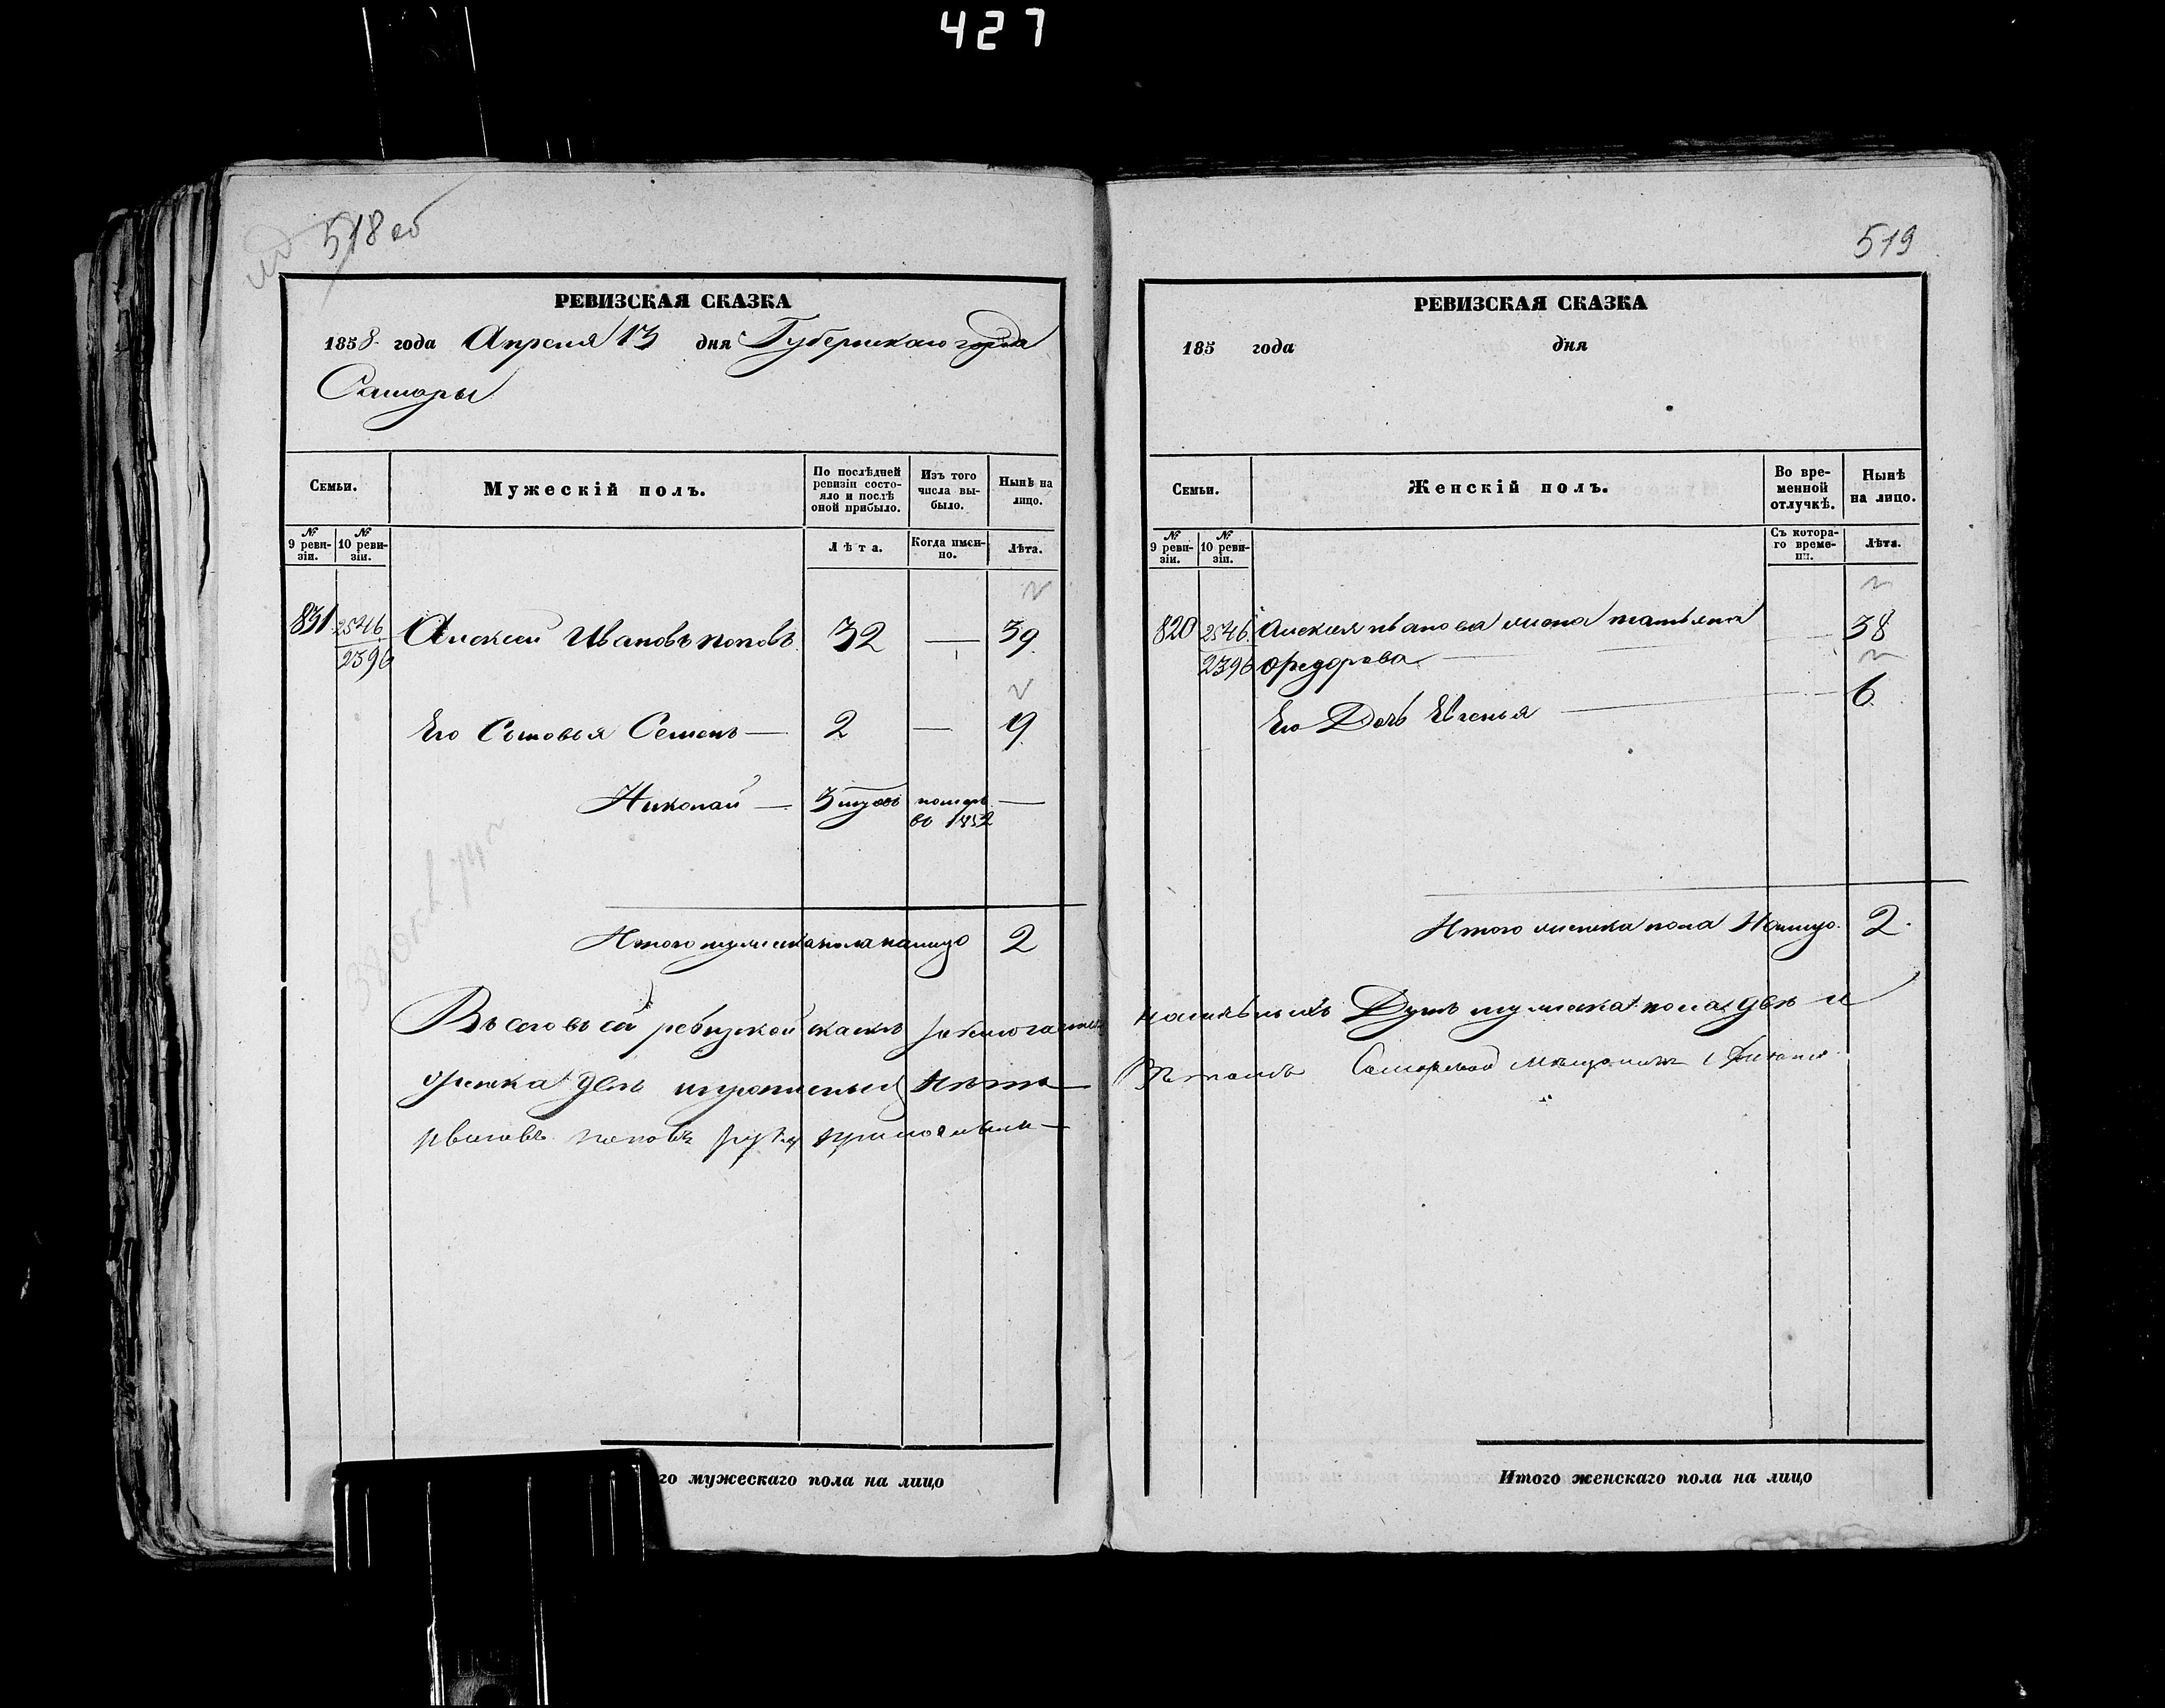 427
518 об
РЕВИЗСКАЯ СКАЗКА
1858 года Апреля 13 дня Губернскаго города
Самары
Семьи.
Мужескій полъ.
По послѣдней ревизіи состояло и послѣ оной прибыло.
Изъ того числа выбыло.
Нынѣ на лицо.
№ 9 ревизіи.
№ 10 ревизіи.
Лѣта.
Когда именно.
Лѣта.
831 2546 Алексей Ивановъ поповъ 32 — 39
2396
Его Сыновья Семенъ — 2 — 9
Николай — 3 помер —
во 1852
Итого мужеска пола налицо 2
Въ сей ревизской
женска две и прописных нетъ
ивановъ поповъ руку приложилъ
го мужескаго пола на лицо
519
РЕВИЗСКАЯ СКАЗКА
185 года дня
Семьи.
Женскій полъ.
Во временной отлучкѣ.
Нынѣ на лицо.
№ 9 ревизіи.
№ 10 ревизіи.
Съ котораго времени.
Лѣта.
820 2546 Алексея иванова жена татьяна 38
2396 Федорова
Его Дочь Евгенья 6
Итого женска пола Налицо 2
Душъ мужеска пола две и
Самарской мещанинъ
Итого женскаго пола на лицо